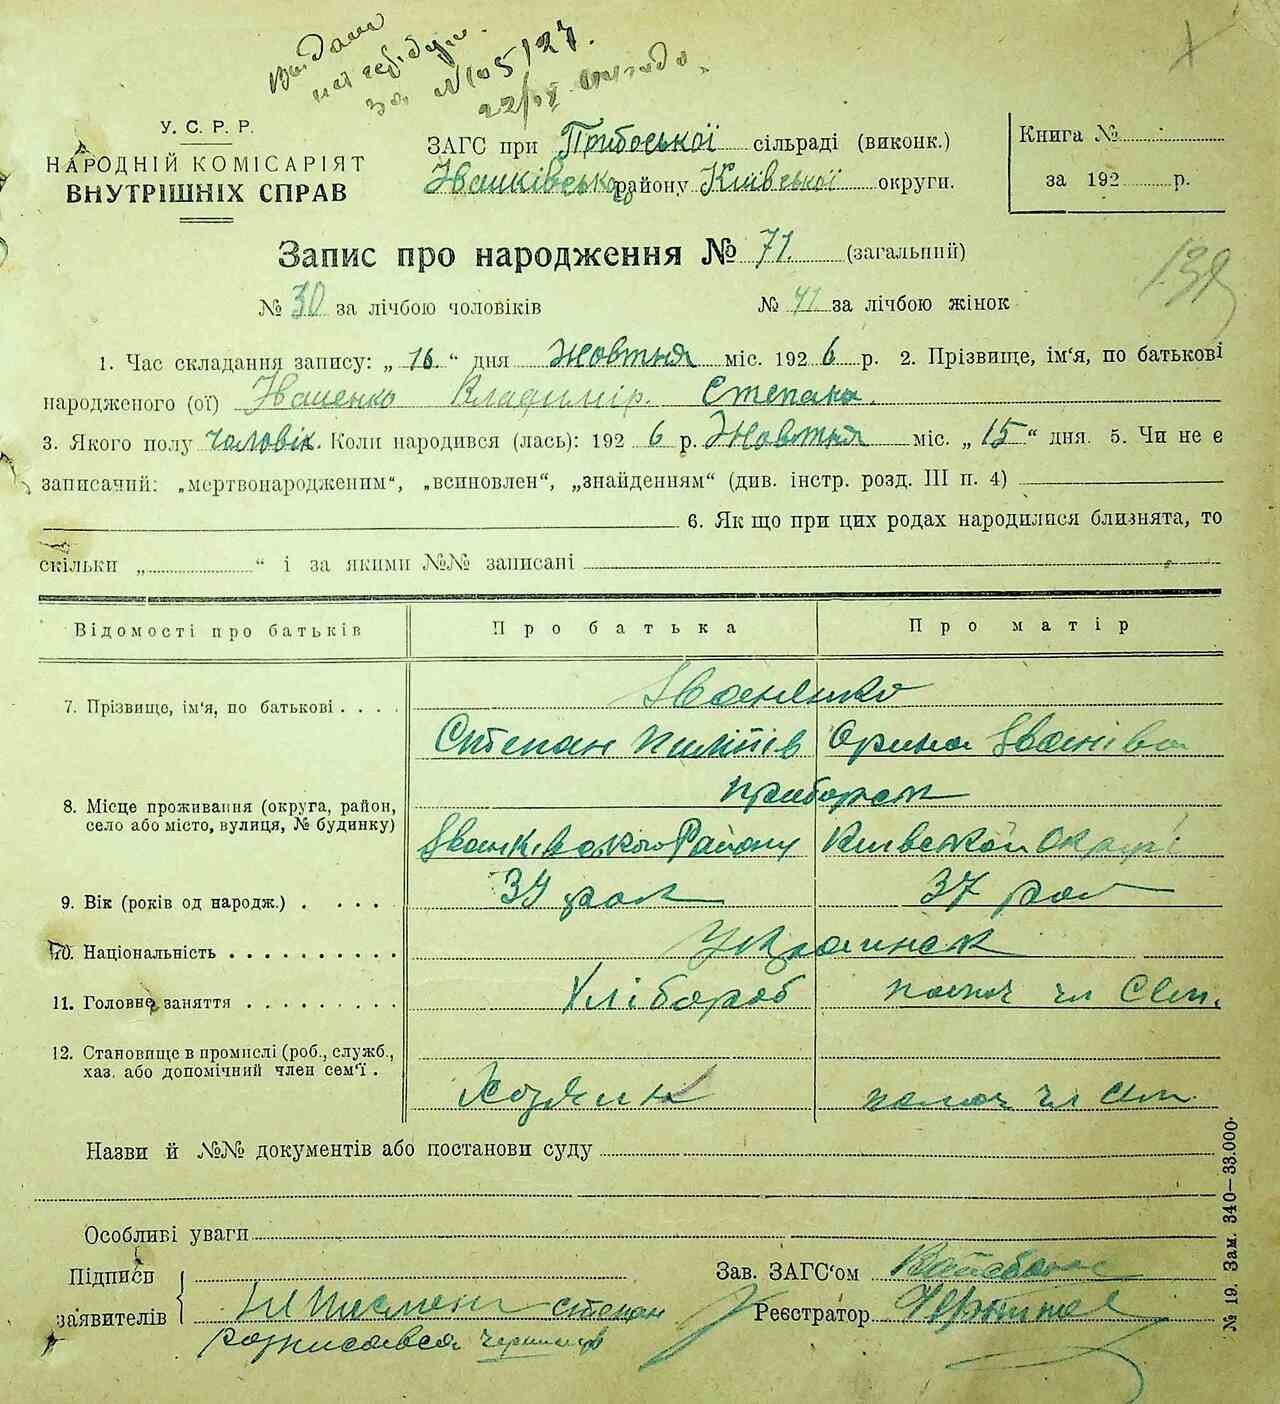 Видана
на
за № 105/27.
У. С. Р. Р.
НАРОДНІЙ КОМІСАРІЯТ
ВНУТРІШНІХ СПРАВ
ЗАГС при Прибоської сільраді (виконк.)
Іванківсько району Київської округи.
Книга №
за 192 р.
Запис про народження № 71. (загальний)
№ 30 за лічбою чоловіків № 41 за лічбою жінок
139
1. Час складання запису: „ 16 “ дня Жовтня міс. 192 6 р. 2. Прізвище, ім'я, по батькові
народженого (ої) Іваненко Владимір. Степана.
3. Якого полу чоловік. Коли народився (лась): 192 6 р. Жовтня міс. „ 15 “ дня. 5. Чи не є
записаний: „мертвонародженим“, „всиновлен“, „знайденням“ (див. інстр. розд. III п. 4)
6. Як що при цих родах народилися близнята, то
скільки „ “ і за якими №№ записані
Відомості про батьків Про батька Про матір
Іваненко
7. Прізвище, ім'я, по батькові
Степан Пилипів Орина Іванівна
8. Місце проживання (округа, район,
село або місто, вулиця, № будинку)
Іванківського Району Київской Округі
9. Вік (років од народж.) 39 рок 37 рок
10. Національність Украинск
11. Головне заняття Хлібороб помоч чл Сем.
12. Становище в промислі (роб., служб.,
хаз. або допомічний член сем'ї.
Хозяин помоч чл Сем.
Назви й №№ документів або постанови суду
Особливі уваги
Підписи
заявителів
Неписмен Степан
розписався
Зав. ЗАГС'ом
Реєстратор
№ 19. Зам. 340—33.000.